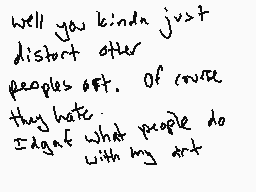 well you kinda just
distort other
peoples art. Of course
they hate.
Idgaf what people do
with my art